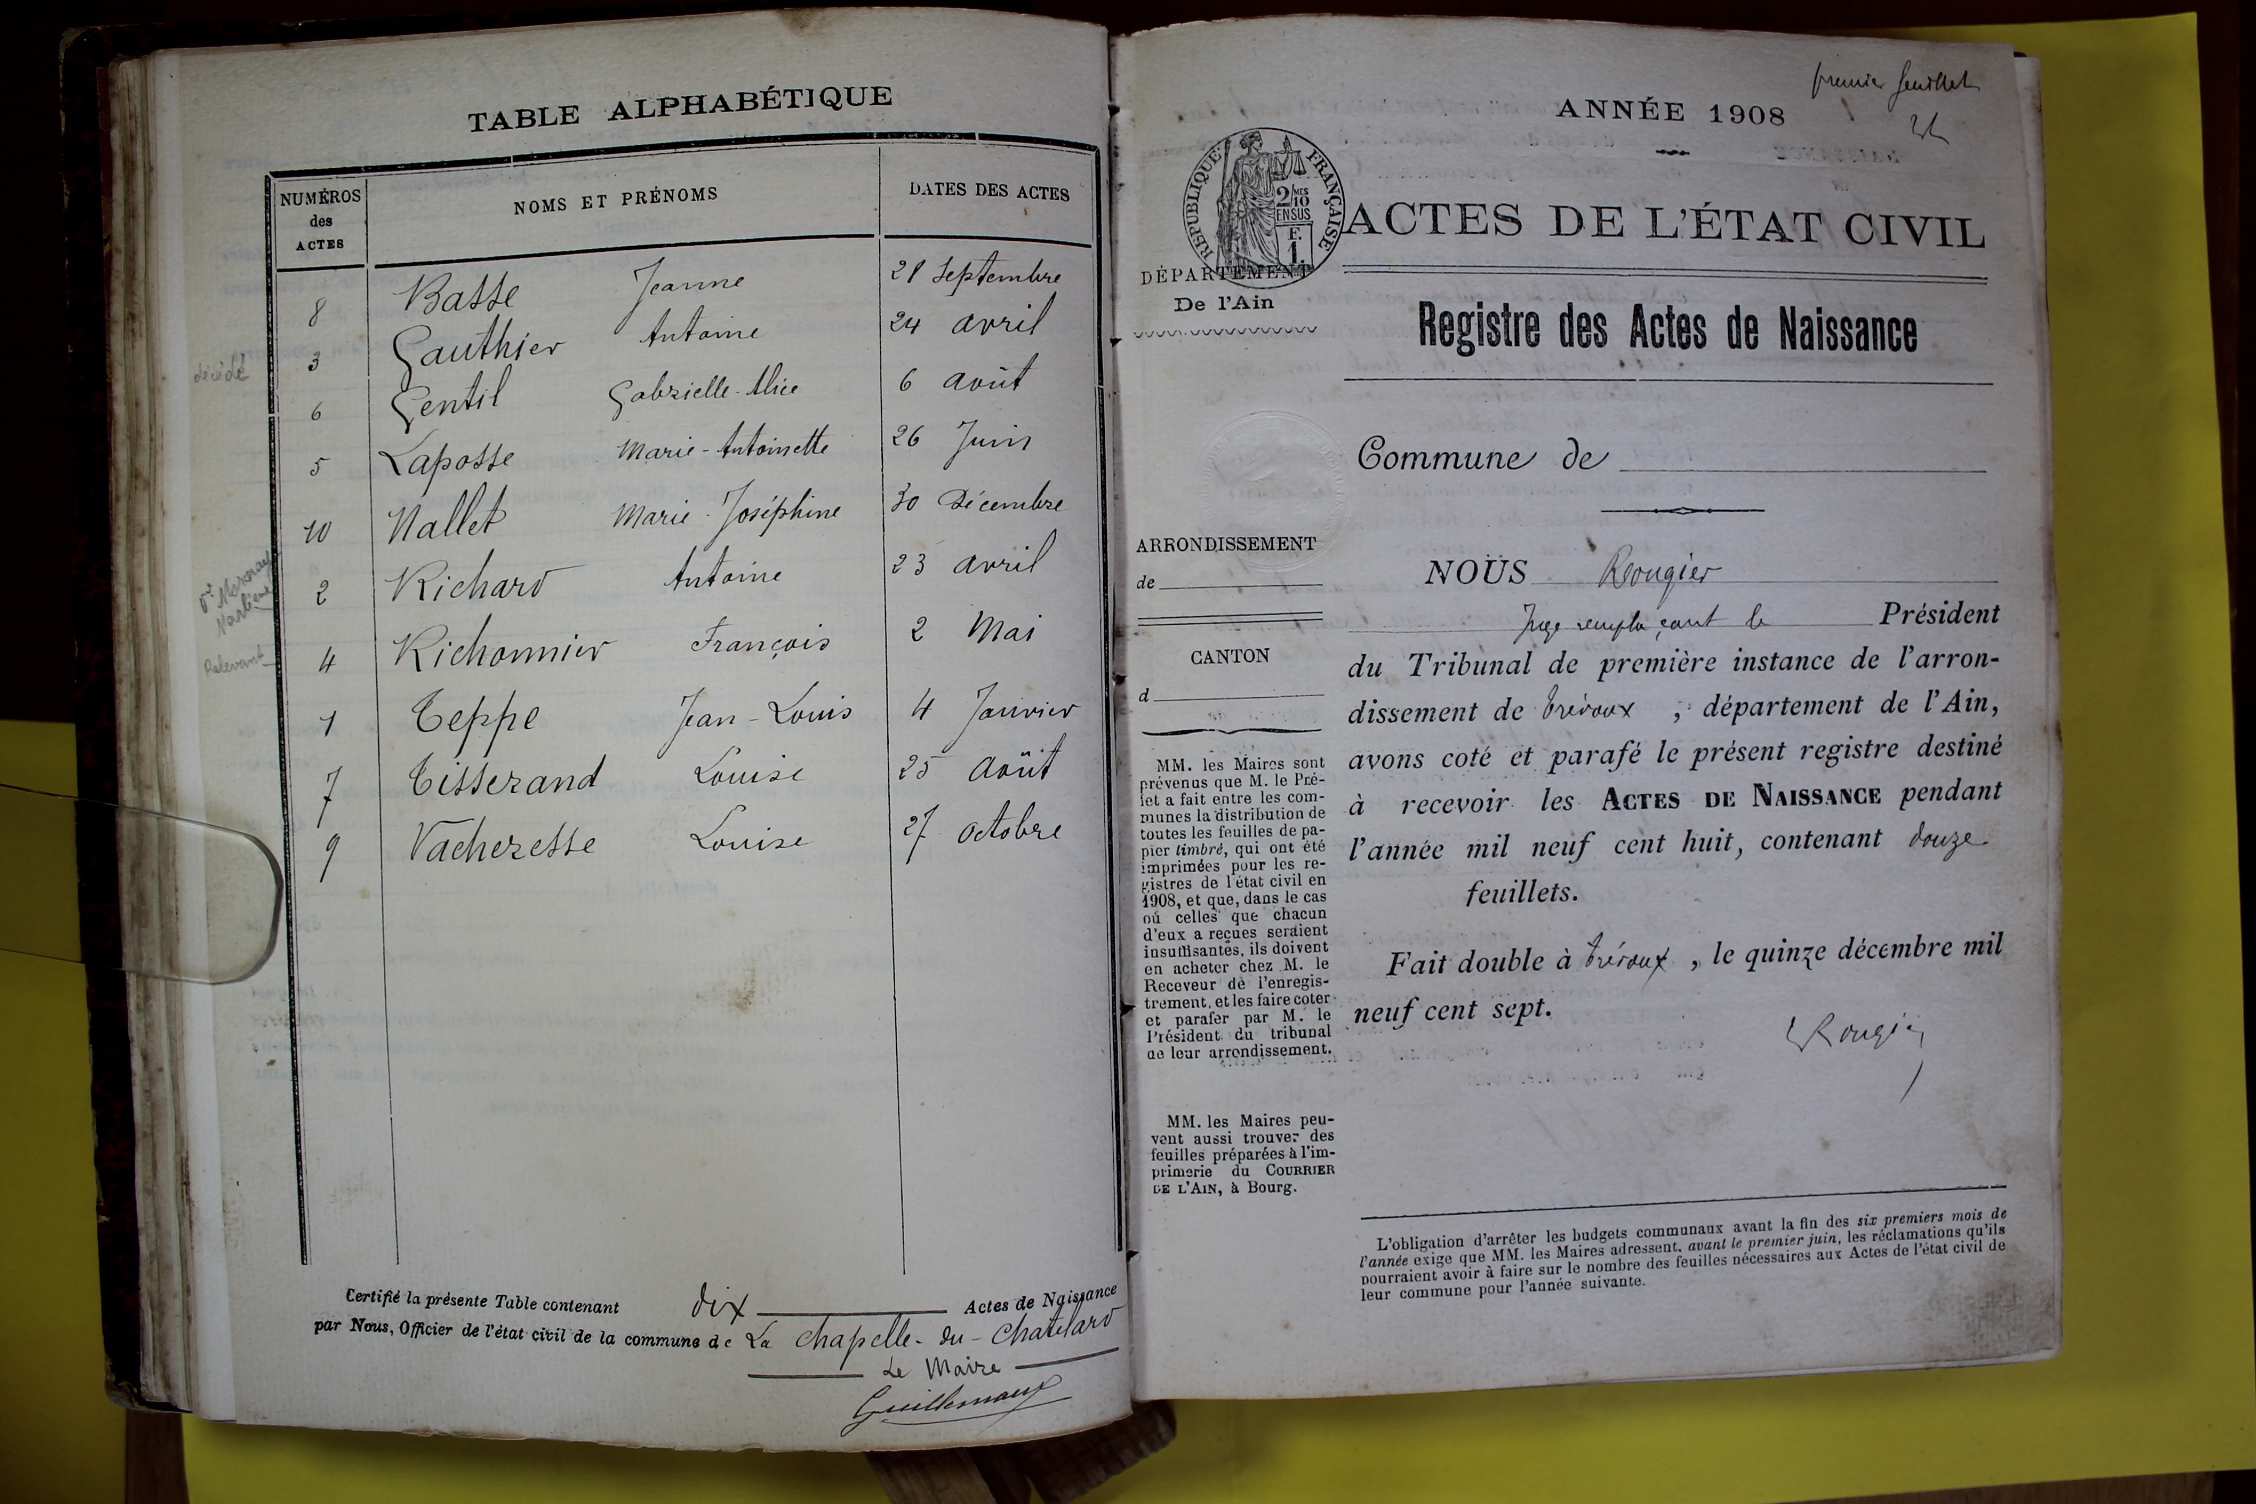 TABLE ALPHABÉTIQUE
NUMÉROS des ACTES NOMS ET PRÉNOMS DATES DES ACTES
8 Basse Jeanne 28 Septembre
décédé 3 Gauthier Antoine 24 avril
6 Gentil Gabrielle-Alice 6 août
5 Laposse Marie-Antoinette 26 Juin
10 Nallet Marie-Joséphine 30 Décembre
2 Richard Antoine 23 avril
Relevant 4 Richonnier François 2 Mai
1 Teppe Jean-Louis 4 Janvier
7 Tisserand Louise 25 Août
9 Vacheresse Louise 27 octobre
Certifié la présente Table contenant dix Actes de Naissance
par Nous, Officier de l'état civil de la commune de La Chapelle-du-Chatelard
Le Maire
Guillemaux
premier feuillet
ANNÉE 1908
RÉPUBLIQUE FRANÇAISE
2/10 MES
EN SUS
F.
1.
ACTES DE L'ÉTAT CIVIL
DÉPARTEMENT
De l'Ain
Registre des Actes de Naissance
Commune de
ARRONDISSEMENT
de
CANTON
d
MM. les Maires sont
prévenus que M. le Pré-
fet a fait entre les com-
munes la distribution de
toutes les feuilles de pa-
pier timbré, qui ont été
imprimées pour les re-
gistres de l'état civil en
1908, et que, dans le cas
où celles que chacun
d'eux a reçues seraient
insuffisantes, ils doivent
en acheter chez M. le
Receveur de l'enregis-
trement, et les faire coter
et parafer par M. le
Président du tribunal
de leur arrondissement.
MM. les Maires peu-
vent aussi trouver des
feuilles préparées à l'im-
primerie du COURRIER
DE L'AIN, à Bourg.
NOUS Rougier
Juge remplaçant le Président
du Tribunal de première instance de l'arron-
dissement de Trévoux, département de l'Ain,
avons coté et parafé le présent registre destiné
à recevoir les ACTES DE NAISSANCE pendant
l'année mil neuf cent huit, contenant douze
feuillets.
Fait double à Trévoux, le quinze décembre mil
neuf cent sept.
Rougier
L'obligation d'arrêter les budgets communaux avant la fin des six premiers mois de
l'année exige que MM. les Maires adressent, avant le premier juin, les réclamations qu'ils
pourraient avoir à faire sur le nombre des feuilles nécessaires aux Actes de l'état civil de
leur commune pour l'année suivante.